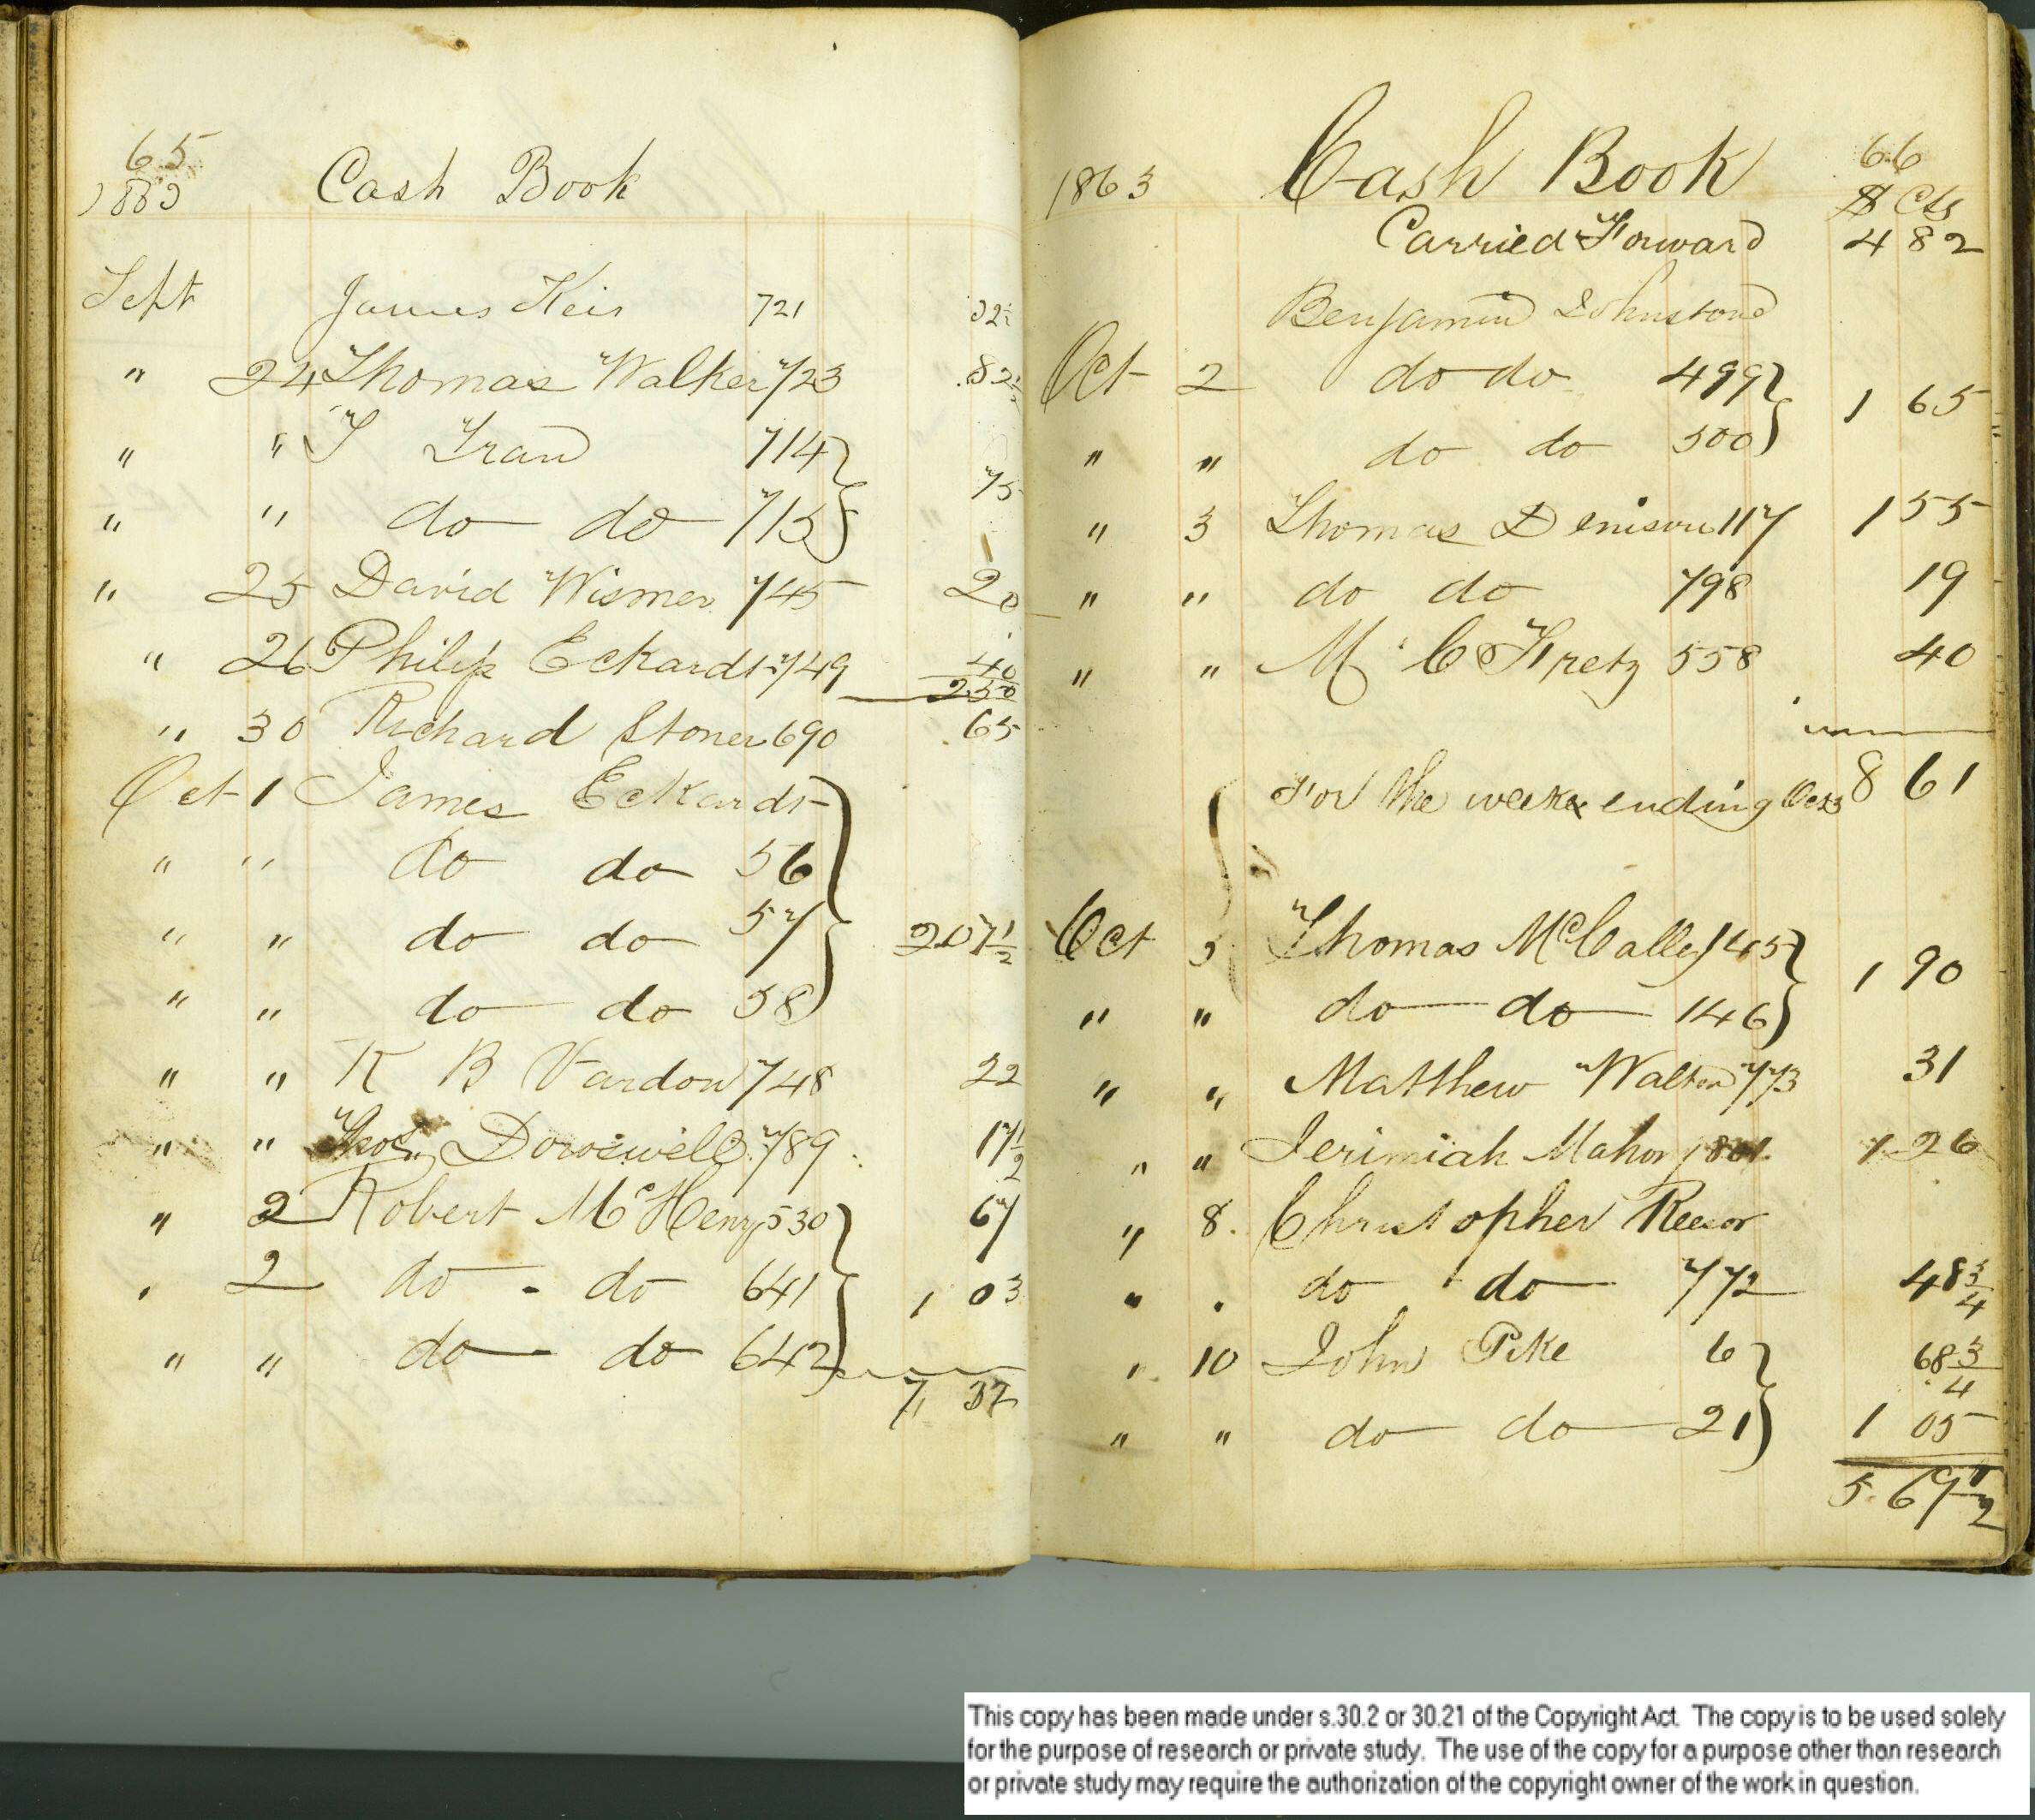 65
1863 Cash Book
Sept James Keis 721 32½
" 24 Thomas Walker 723 82½
" " T Tran 714
75
" " do do 715
" 25 David Wismer 745 20
" 26 Philip Eckardt 749 40
250
" 30 Richard Stoner 690 65
Oct 1 James Eckardt
" " do do 56
" " do do 57 2 07½
" " do do 58
" " R B Vardon 748 22
" " Thos 789 17½
" 2 Robert McHenry 530 67
" 2 do - do 641 1 03
" " do - do 642
7 32
66
1863 Cash Book
$ Cts
Carried Forward 4 82
Benjamin Johnstone
Oct 2 do do 499
1 65
" " do do 500
" 3 Thomas Denison 117 1 55
" " do do 798 19
" " M C Fretz 558 40
For the week ending Oct 3 8 61
Oct 5 Thomas McCalley 145
1 90
" " do do 146
" " Matthew Walton 773 31
" " Jerimiah Mahony 801 1 26
" 8. Christopher Reesor
" . do do 772 48¾
" 10 John Pike 6 68¾
" " do do 21 1 05
5 69½
This copy has been made under s.30.2 or 30.21 of the Copyright Act. The copy is to be used solely
for the purpose of research or private study. The use of the copy for a purpose other than research
or private study may require the authorization of the copyright owner of the work in question.